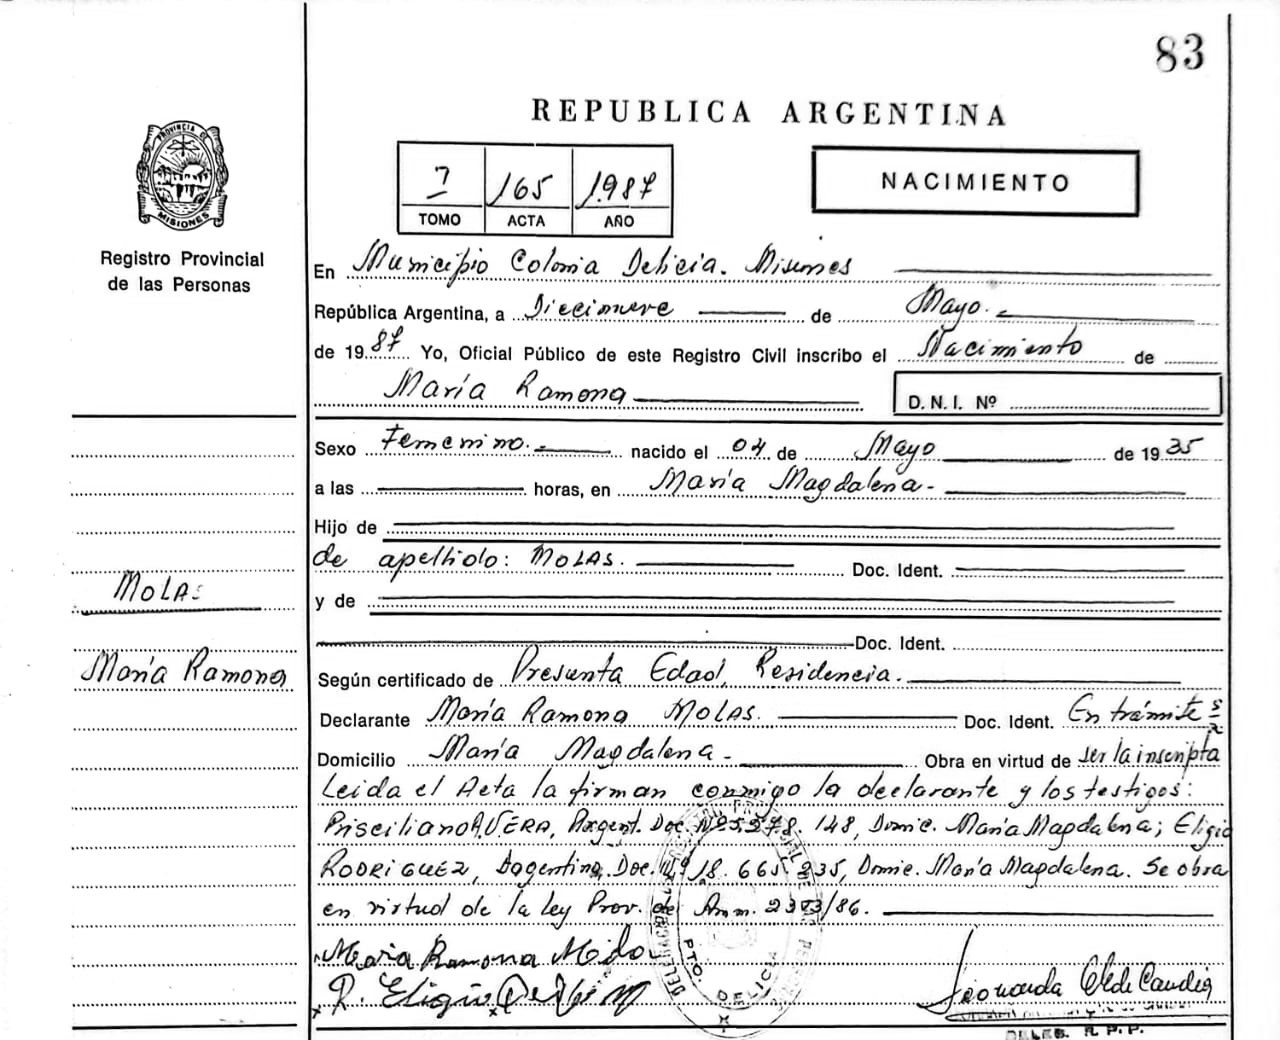 83
REPUBLICA ARGENTINA
PROVINCIA DE
MISIONES
Registro Provincial
de las Personas
7 165 1987
TOMO ACTA AÑO
NACIMIENTO
En Municipio Colonia Delicia. Misiones
República Argentina, a Diecinueve de Mayo.
de 1987 Yo, Oficial Público de este Registro Civil inscribo el Nacimiento de
María Ramona D. N. I. Nº
Sexo Femenino. nacido el 04 de Mayo de 1935
a las horas, en María Magdalena-
Hijo de
de apellido: MOLAS. Doc. Ident.
MOLAS
y de
Doc. Ident.
María Ramona
Según certificado de Presunta Edad, Residencia.
Declarante María Ramona MOLAS. Doc. Ident. En trámite
Domicilio María Magdalena- Obra en virtud de ser la inscripta
Leida el Acta la firman conmigo la declarante y los testigos:
Prisciliano A. VERA, Argent. Doc. Nº 148, Domic. María Magdalena; Eligio
RODRIGUEZ, Argentino, Doc. Nº 18.665.235, Domic. María Magdalena. Se obra
en virtud de la ley Prov. de Amn. /86.
Maria Ramona
R. Eligio
PTO. DELICIA
Leonarda de Candia
DELEG. R. P. P.